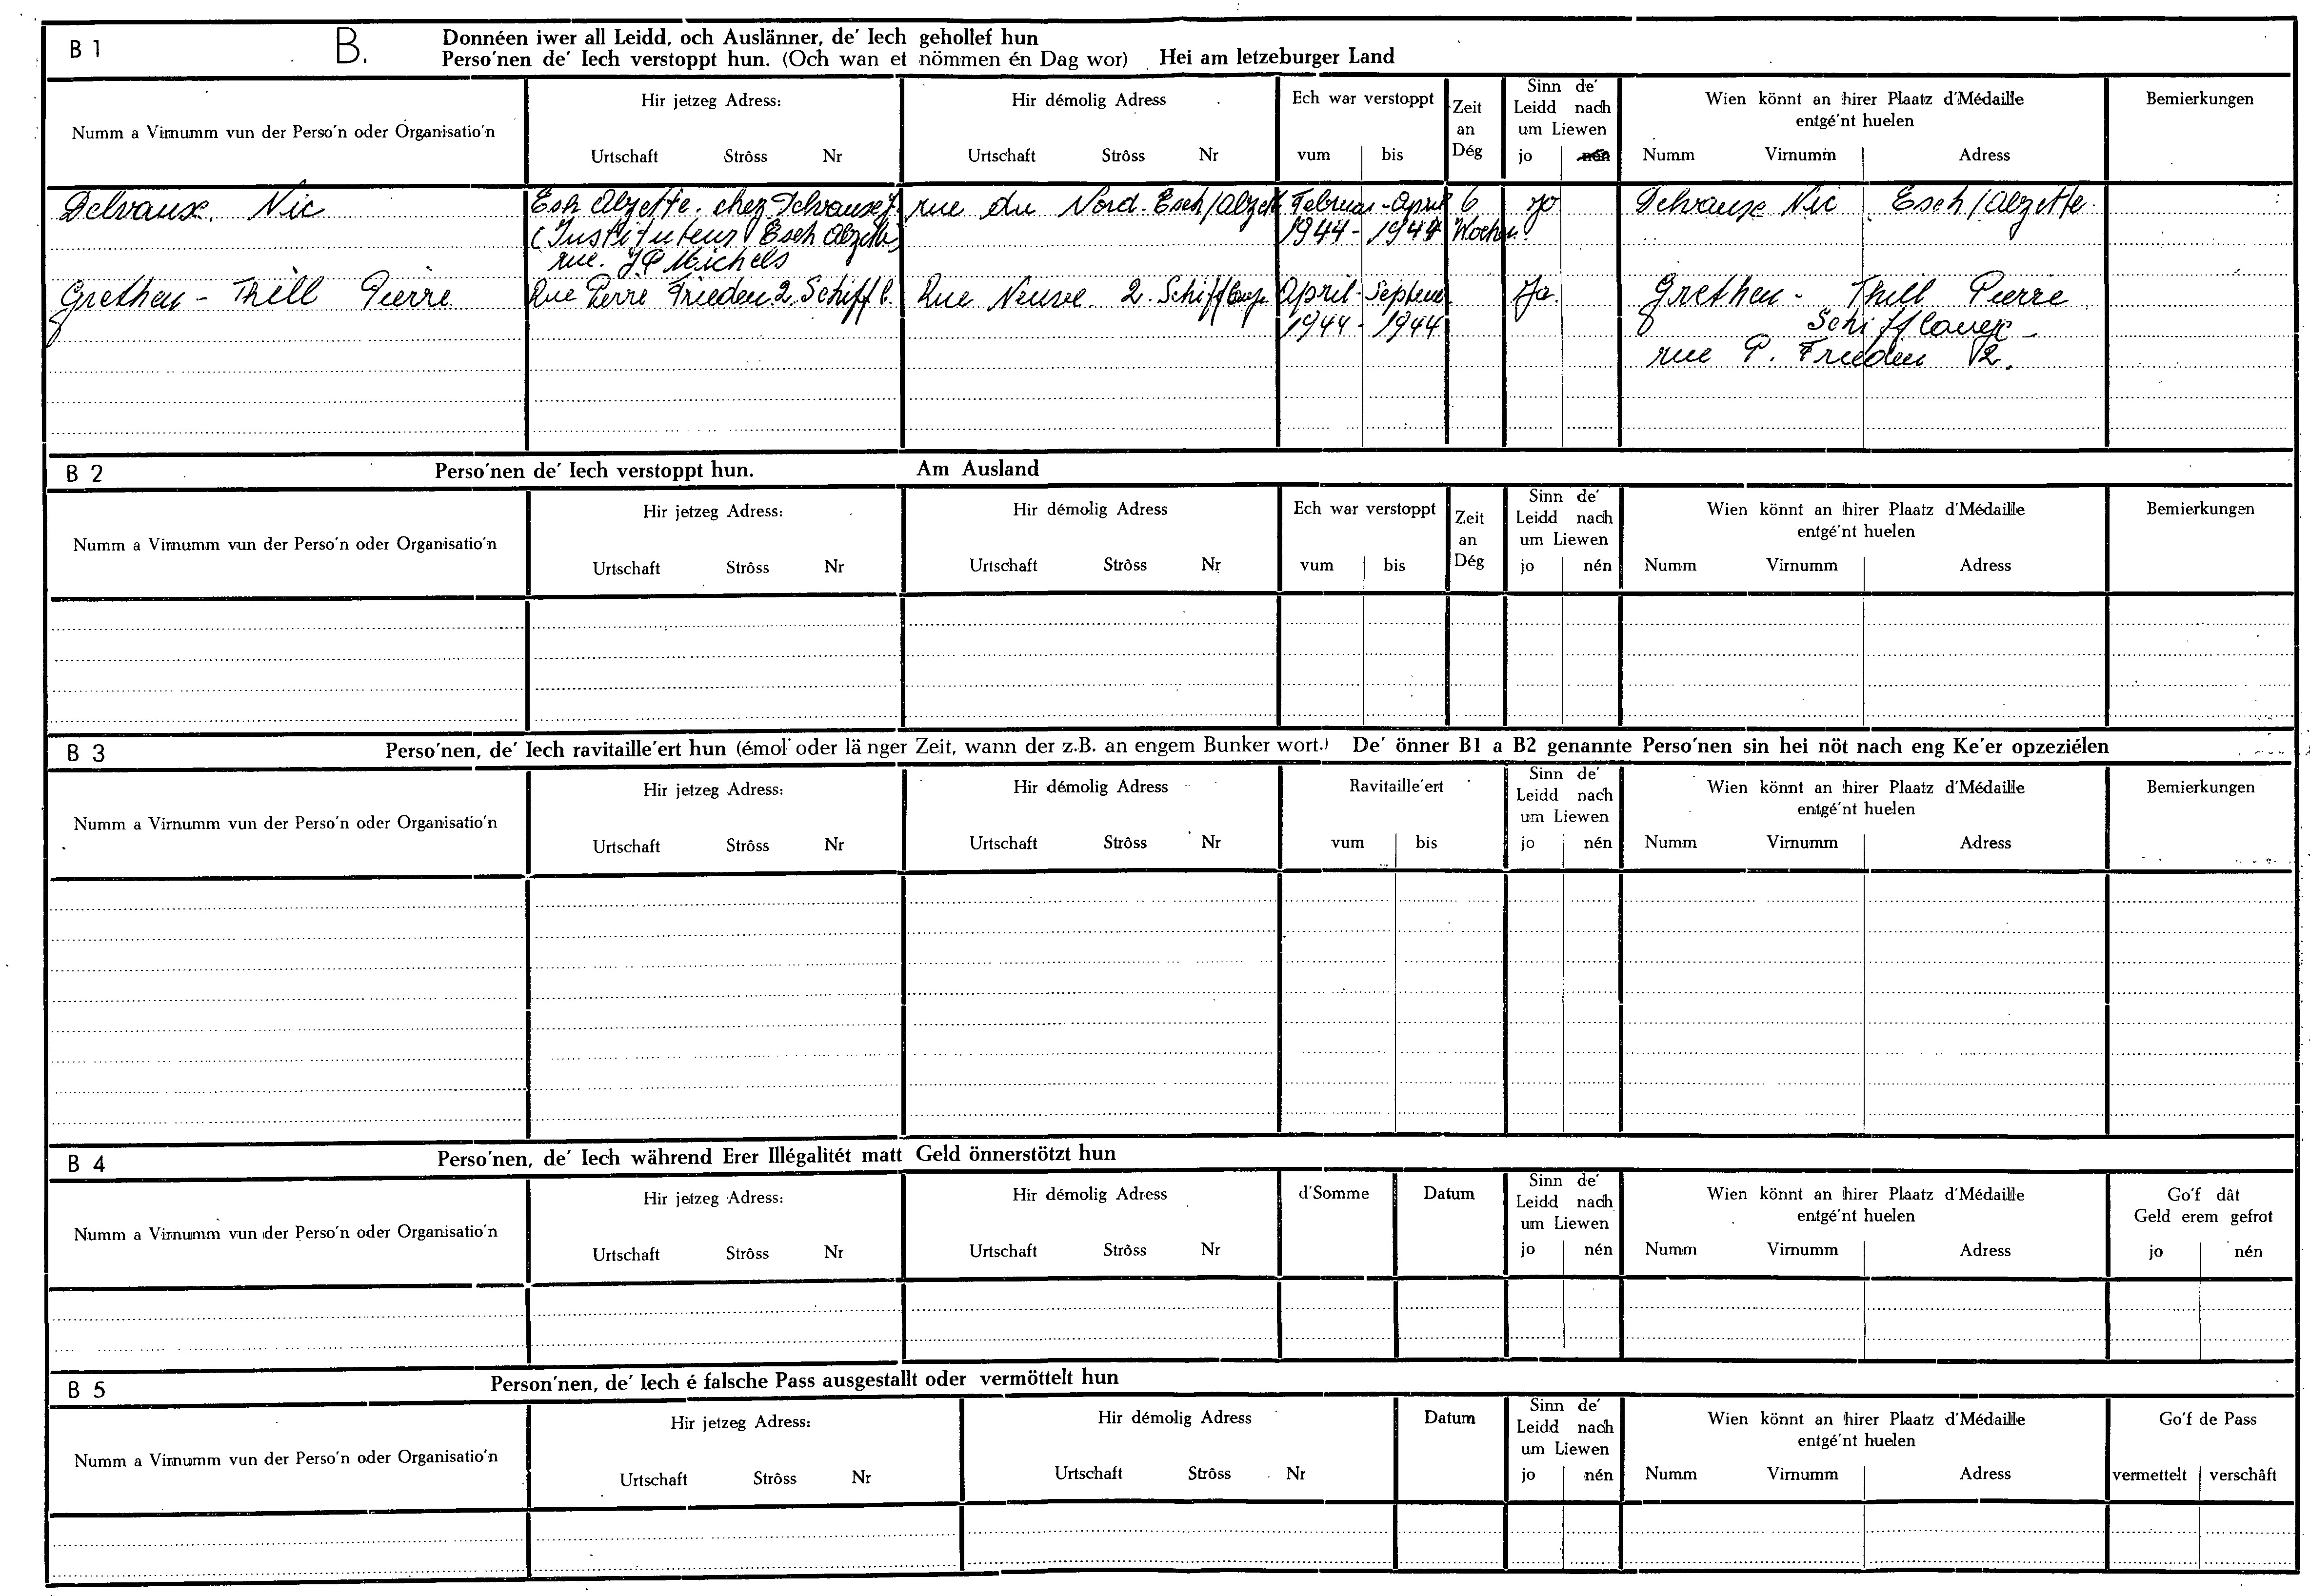 B 1 B. Donnéen iwer all Leidd, och Auslänner, de' Iech gehollef hun
Perso'nen de' Iech verstoppt hun. (Och wan et nömmen én Dag wor) Hei am letzeburger Land
Numm a Virnumm vun der Perso'n oder Organisatio'n
Hir jetzeg Adress:
Urtschaft Strôss Nr
Hir démolig Adress
Urtschaft Strôss Nr
Ech war verstoppt
vum bis
Zeit
an
Dég
Sinn de'
Leidd nach
um Liewen
jo nén
Wien könnt an hirer Plaatz d'Médaille
entgé'nt huelen
Numm Virnumm Adress
Bemierkungen
Delvaux. Nic
Esch Alzette. chez Delvaux J.
(Instituteur Esch Alzette)
rue. J P Michels
rue du Nord. Esch/Alzett
Februar - April
1944 - 1944
6
Wochen.
jo
Delvaux Nic Esch/Alzette.
Grethen - Thill Pierre
Rue Pierre Frieden 2. Schiffl.
Rue Neuve 2. Schifflange
April - Septem
1944 - 1944
Ja.
Grethen - Thill Pierre
Schifflange
rue P. Frieden 2.
B 2 Perso'nen de' Iech verstoppt hun. Am Ausland
Numm a Virnumm vun der Perso'n oder Organisatio'n
Hir jetzeg Adress:
Urtschaft Strôss Nr
Hir démolig Adress
Urtschaft Strôss Nr
Ech war verstoppt
vum bis
Zeit
an
Dég
Sinn de'
Leidd nach
um Liewen
jo nén
Wien könnt an hirer Plaatz d'Médaille
entgé'nt huelen
Numm Virnumm Adress
Bemierkungen
B 3 Perso'nen, de' Iech ravitaille'ert hun (émol oder länger Zeit, wann der z.B. an engem Bunker wort.) De' önner B1 a B2 genannte Perso'nen sin hei nöt nach eng Ke'er opzeziélen
Numm a Virnumm vun der Perso'n oder Organisatio'n
Hir jetzeg Adress:
Urtschaft Strôss Nr
Hir démolig Adress
Urtschaft Strôss Nr
Ravitaille'ert
vum bis
Sinn de'
Leidd nach
um Liewen
jo nén
Wien könnt an hirer Plaatz d'Médaille
entgé'nt huelen
Numm Virnumm Adress
Bemierkungen
B 4 Perso'nen, de' Iech während Erer Illégalitét matt Geld önnerstötzt hun
Numm a Virnumm vun der Perso'n oder Organisatio'n
Hir jetzeg Adress:
Urtschaft Strôss Nr
Hir démolig Adress
Urtschaft Strôss Nr
d'Somme
Datum
Sinn de'
Leidd nach
um Liewen
jo nén
Wien könnt an hirer Plaatz d'Médaille
entgé'nt huelen
Numm Virnumm Adress
Go'f dât
Geld erem gefrot
jo nén
B 5 Person'nen, de' Iech é falsche Pass ausgestallt oder vermöttelt hun
Numm a Virnumm vun der Perso'n oder Organisatio'n
Hir jetzeg Adress:
Urtschaft Strôss Nr
Hir démolig Adress
Urtschaft Strôss Nr
Datum
Sinn de'
Leidd nach
um Liewen
jo nén
Wien könnt an hirer Plaatz d'Médaille
entgé'nt huelen
Numm Virnumm Adress
Go'f de Pass
vermettelt verschâft